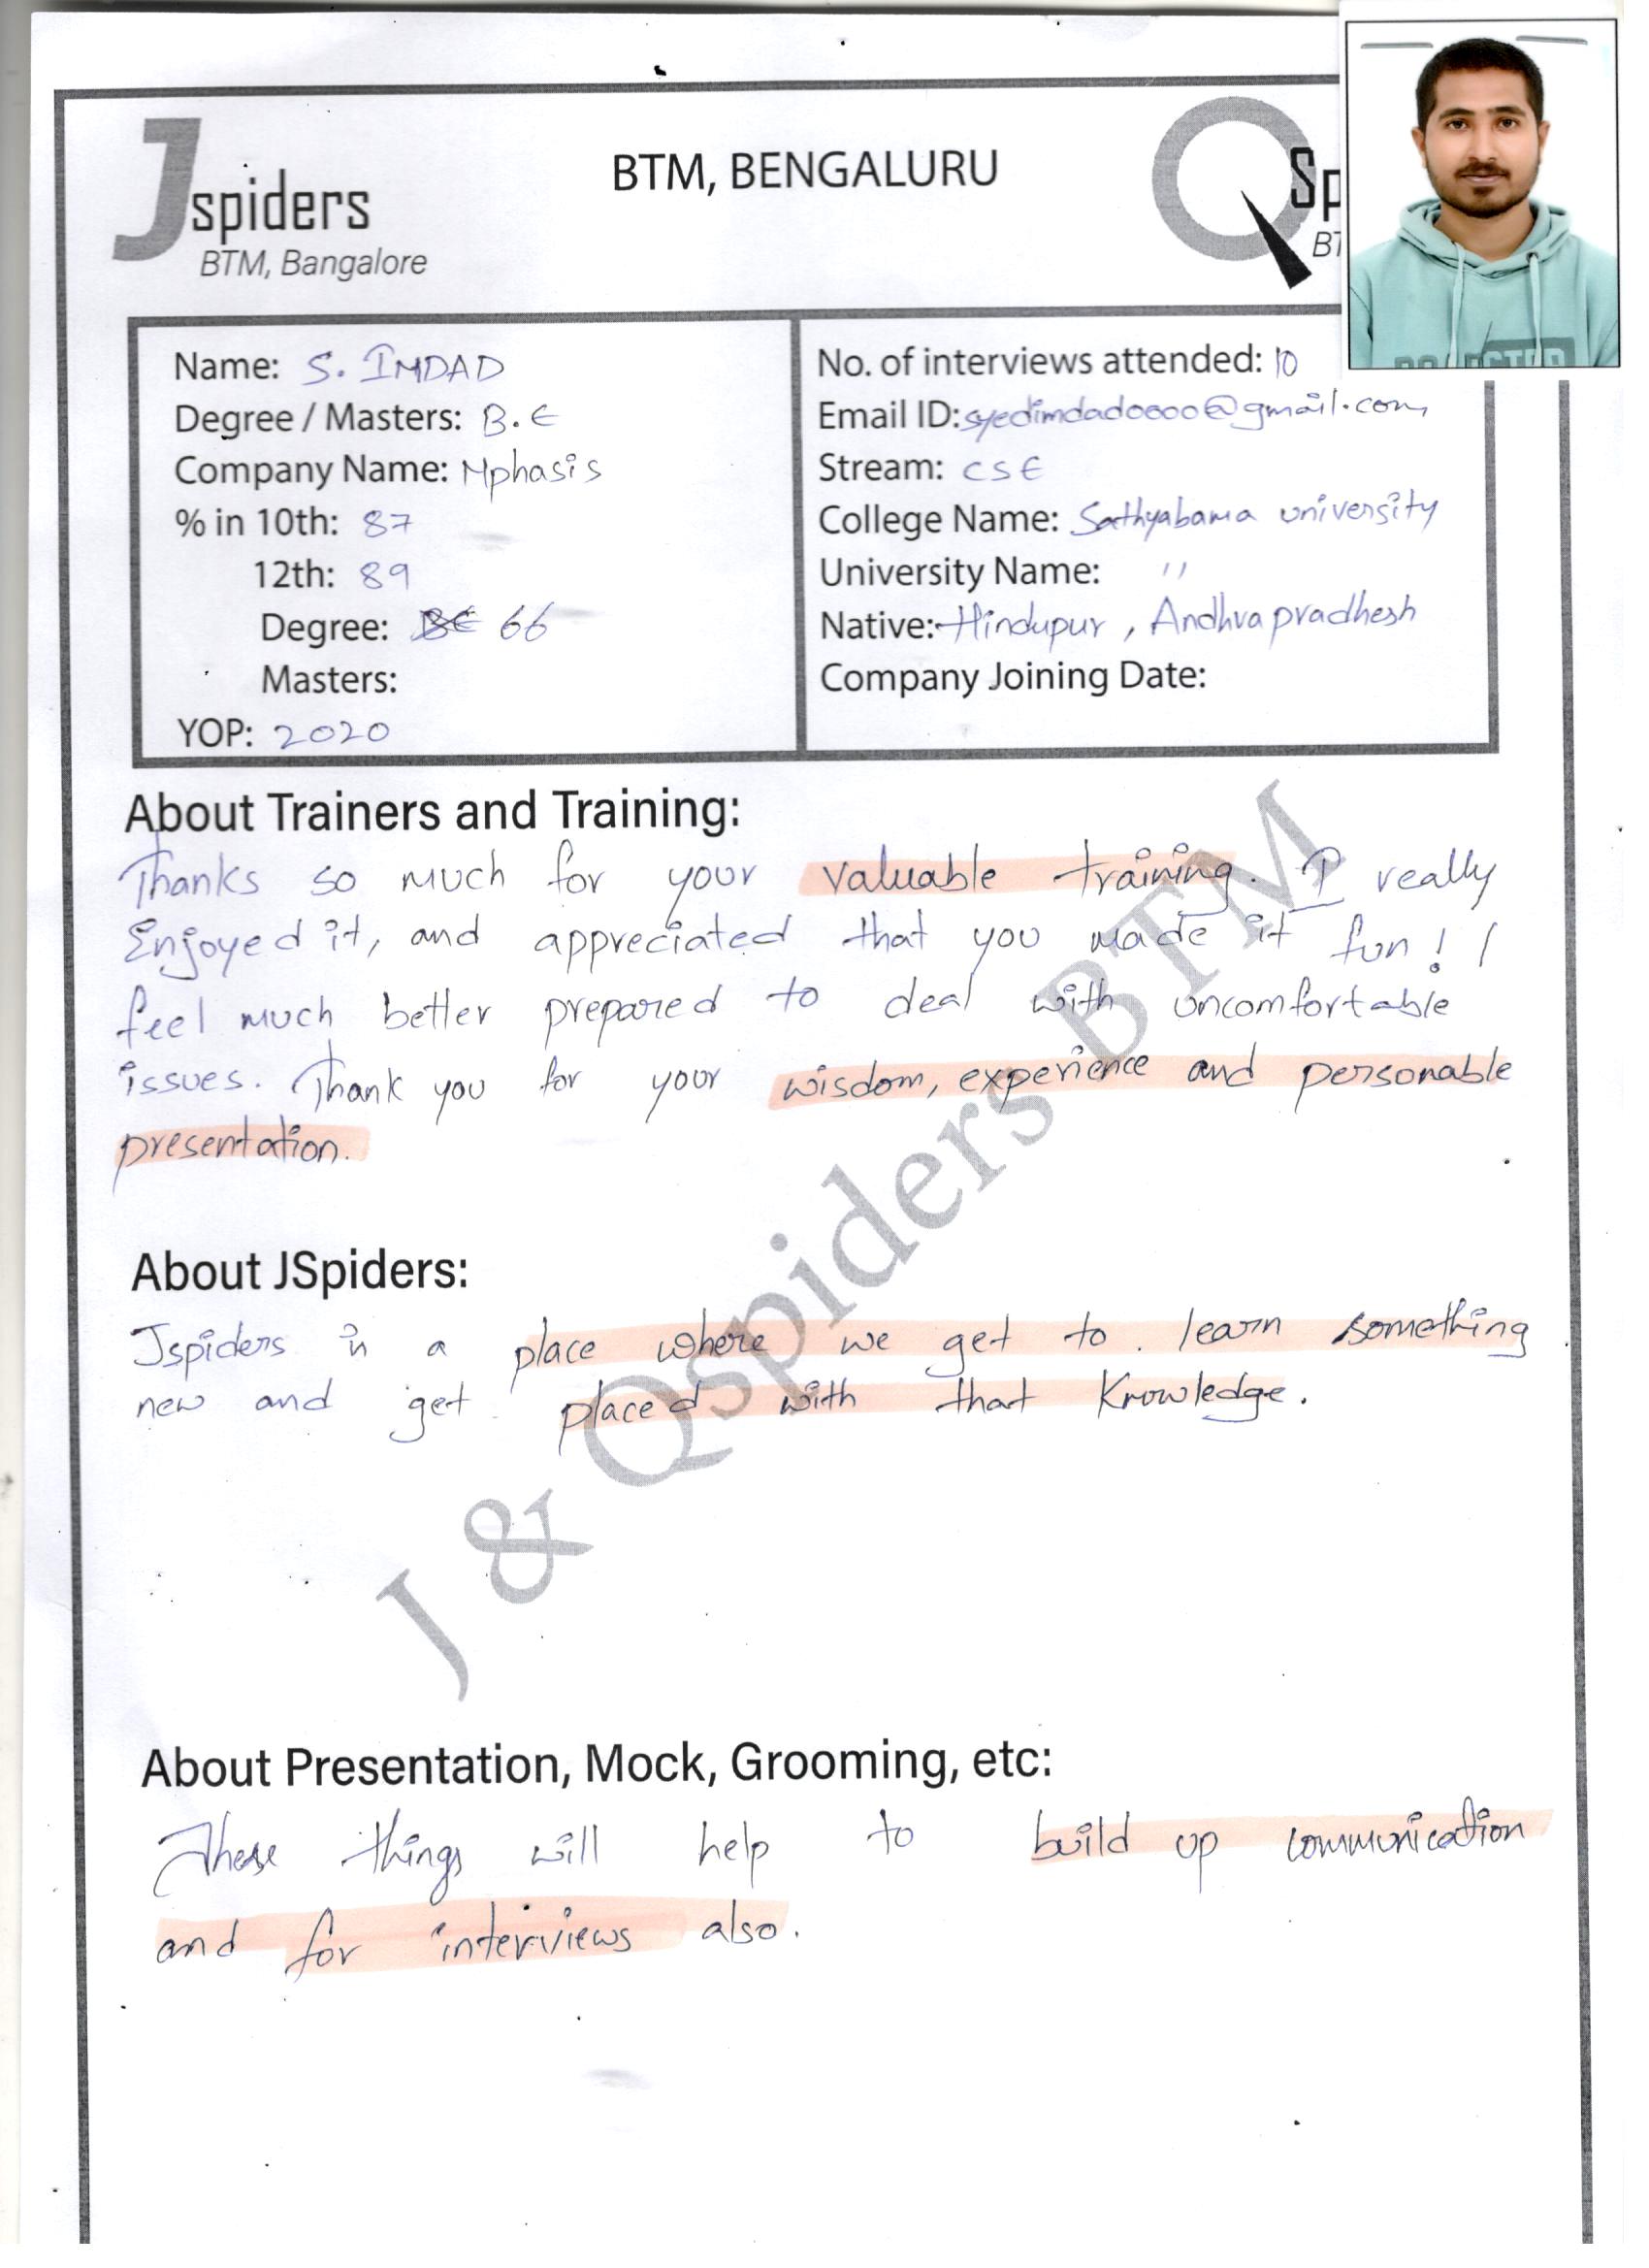 Jspiders
BTM, Bangalore
BTM, BENGALURU
Sp
BT
Name: S. IMDAD
Degree / Masters: B.E
Company Name: Mphasis
% in 10th: 87
12th: 89
Degree: BE 66
Masters:
YOP: 2020
No. of interviews attended: 10
Email ID: syedimdad0000@gmail.com
Stream: CSE
College Name: Sathyabama university
University Name: "
Native: Hindupur, Andhra pradhesh
Company Joining Date:
About Trainers and Training:
Thanks so much for your valuable training. I really
Enjoyed it, and appreciated that you made it fun! I
feel much better prepared to deal with uncomfortable
issues. Thank you for your wisdom, experience and personable
presentation.
About JSpiders:
Jspiders is a place where we get to learn something
new and get placed with that Knowledge.
About Presentation, Mock, Grooming, etc:
These things will help to build up communication
and for interviews also.
J & Qspiders BTM